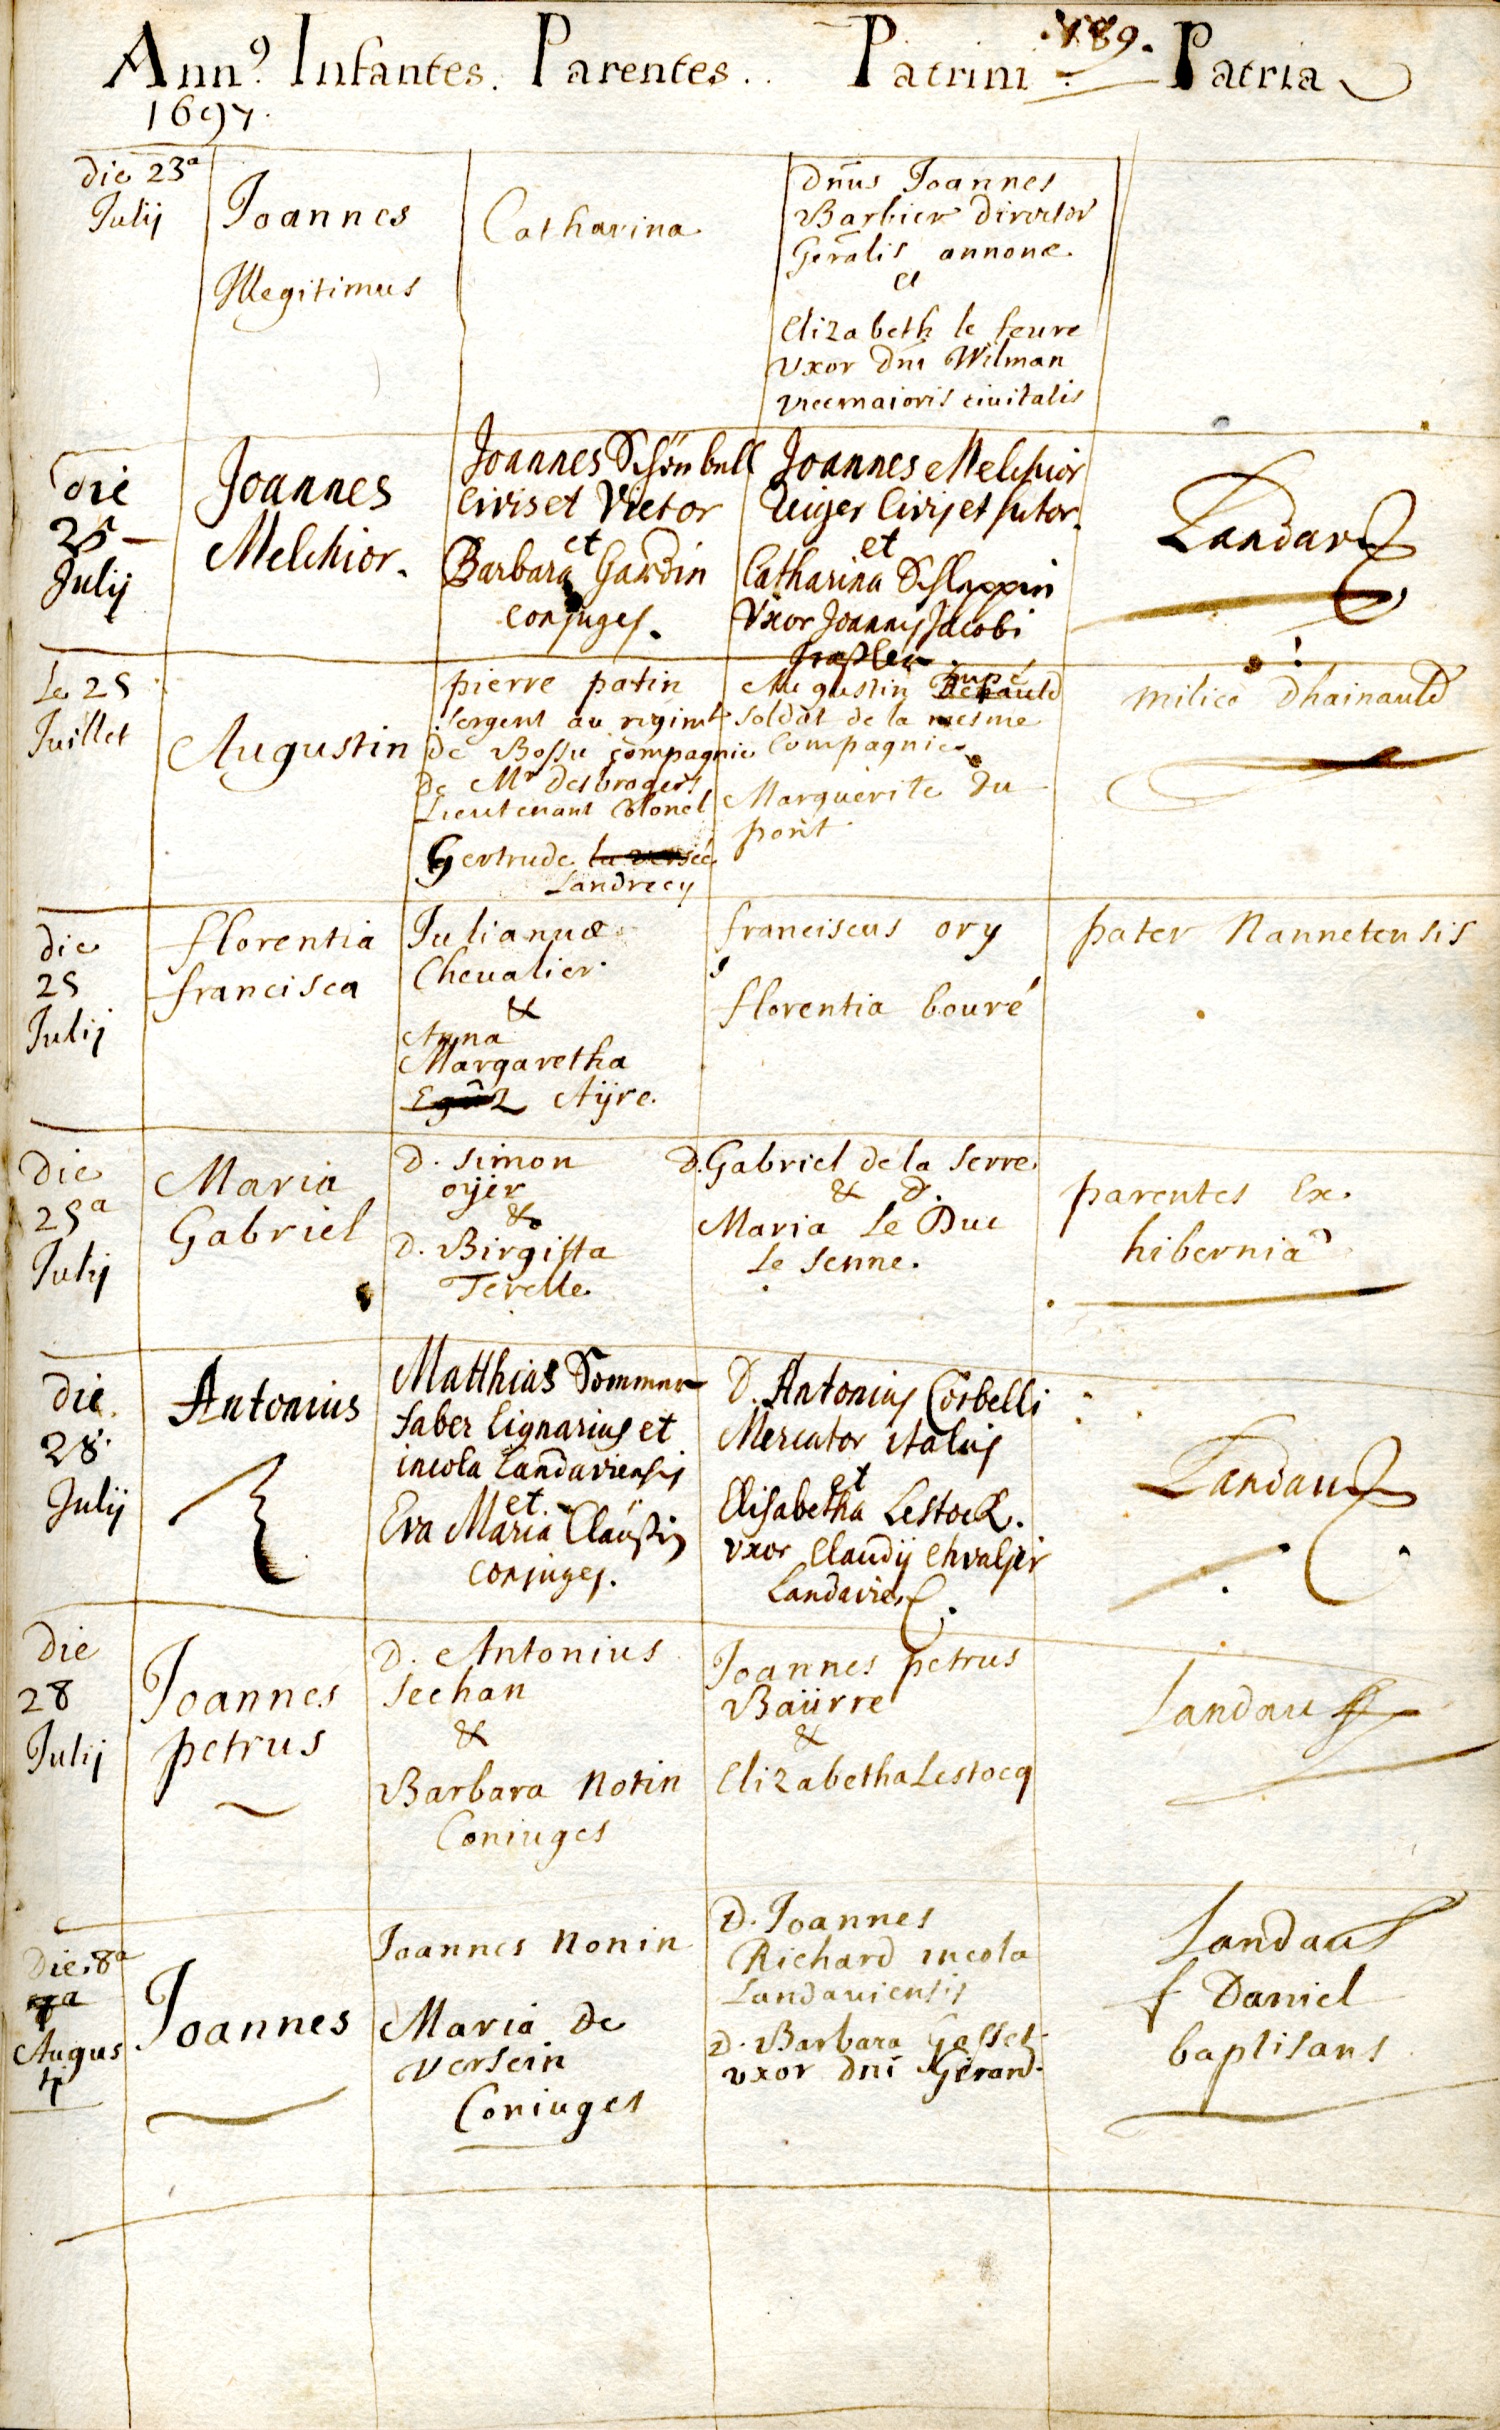 189.
Annꝰ. Infantes. Parentes. Patrini. Patria
1697.
Die 23ª
Julij
Joannes
Illegitimus
Catharina
Dnus Joannes
Barbier Director
Geralis annonæ
et
Elizabeth le feure
uxor Dni Wilman
vicemaioris ciuitatis
die
25
Julij
Joannes
Melchior.
Joannes Schönbull
Civis et Vietor
et
Barbara Gardin
conjuges.
Joannes Melchior
Civis et sutor.
et
Catharina Schlappin
Uxor Joannis Jacobi
Landau
Le 25
Juillet
Augustin
pierre patin
sergent au regimt
de Bossu compagnie
de Mr desbrogers
Lieutenant Colonel
Gertrude
Landrecy
Augustin
soldat de la mesme
Compagnie
Marguerite du
pont
milice dhainauld
die
25
Julij
florentia
francisca
Julianus
Cheualier
&
Anna
Margaretha
Aÿre.
franciscus ory
florentia bouré
pater Nannetensis
Die
25ª
Julij
Maria
Gabriel
D. simon
oyer
&
D. Birgitta
Terelle
D. Gabriel de la serre
& D.
Maria Le Duc
Le senne.
parentes Ex
hibernia
die
28
Julij
Antonius
Matthias Sommer
faber lignarius et
incola Landaviensis
et
Eva Maria Claüßin
conjuges.
D. Antonius Corbelli
Mercator italus
et
Elisabetha Lestock.
uxor Claudij Chvalier
Landavies.
Landau
Die
28
Julij
Joannes
petrus
D. Antonius
Sechan
&
Barbara Notin
Coniuges
Joannes petrus
Baürre
&
Elizabetha Lestocq
Landau
Die 8ª
Augus
ti
Joannes
Joannes Nonin
Maria De
versein
Coniuges
D. Joannes
Richard incola
Landauiensis
D. Barbara Gosset
uxor dni Gerard.
Landau
f Daniel
baptisans